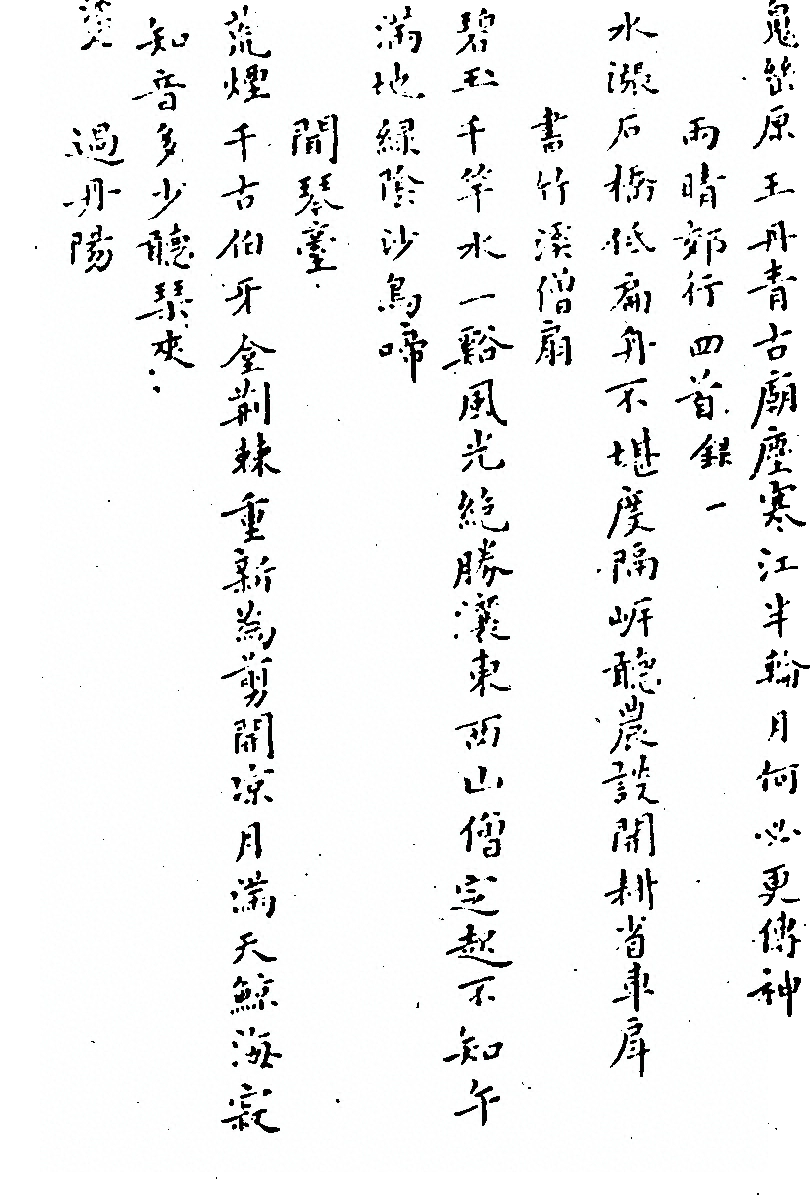 原王丹青古廟塵寒江半輪月何必更傳神
雨晴郊行四首錄一
水漲石橋低扁舟不堪度隔岍聽農談開耕省車戽
書竹溪僧扇
碧玉千竿水一谿風光絶勝瀼東西山僧定起不知午
滿地綠陰沙鳥啼
開琴臺
荒煙千古伯牙㙜荆棘重新為剪開凉月滿天鯨海寂
知音多少聽琴來
過丹陽